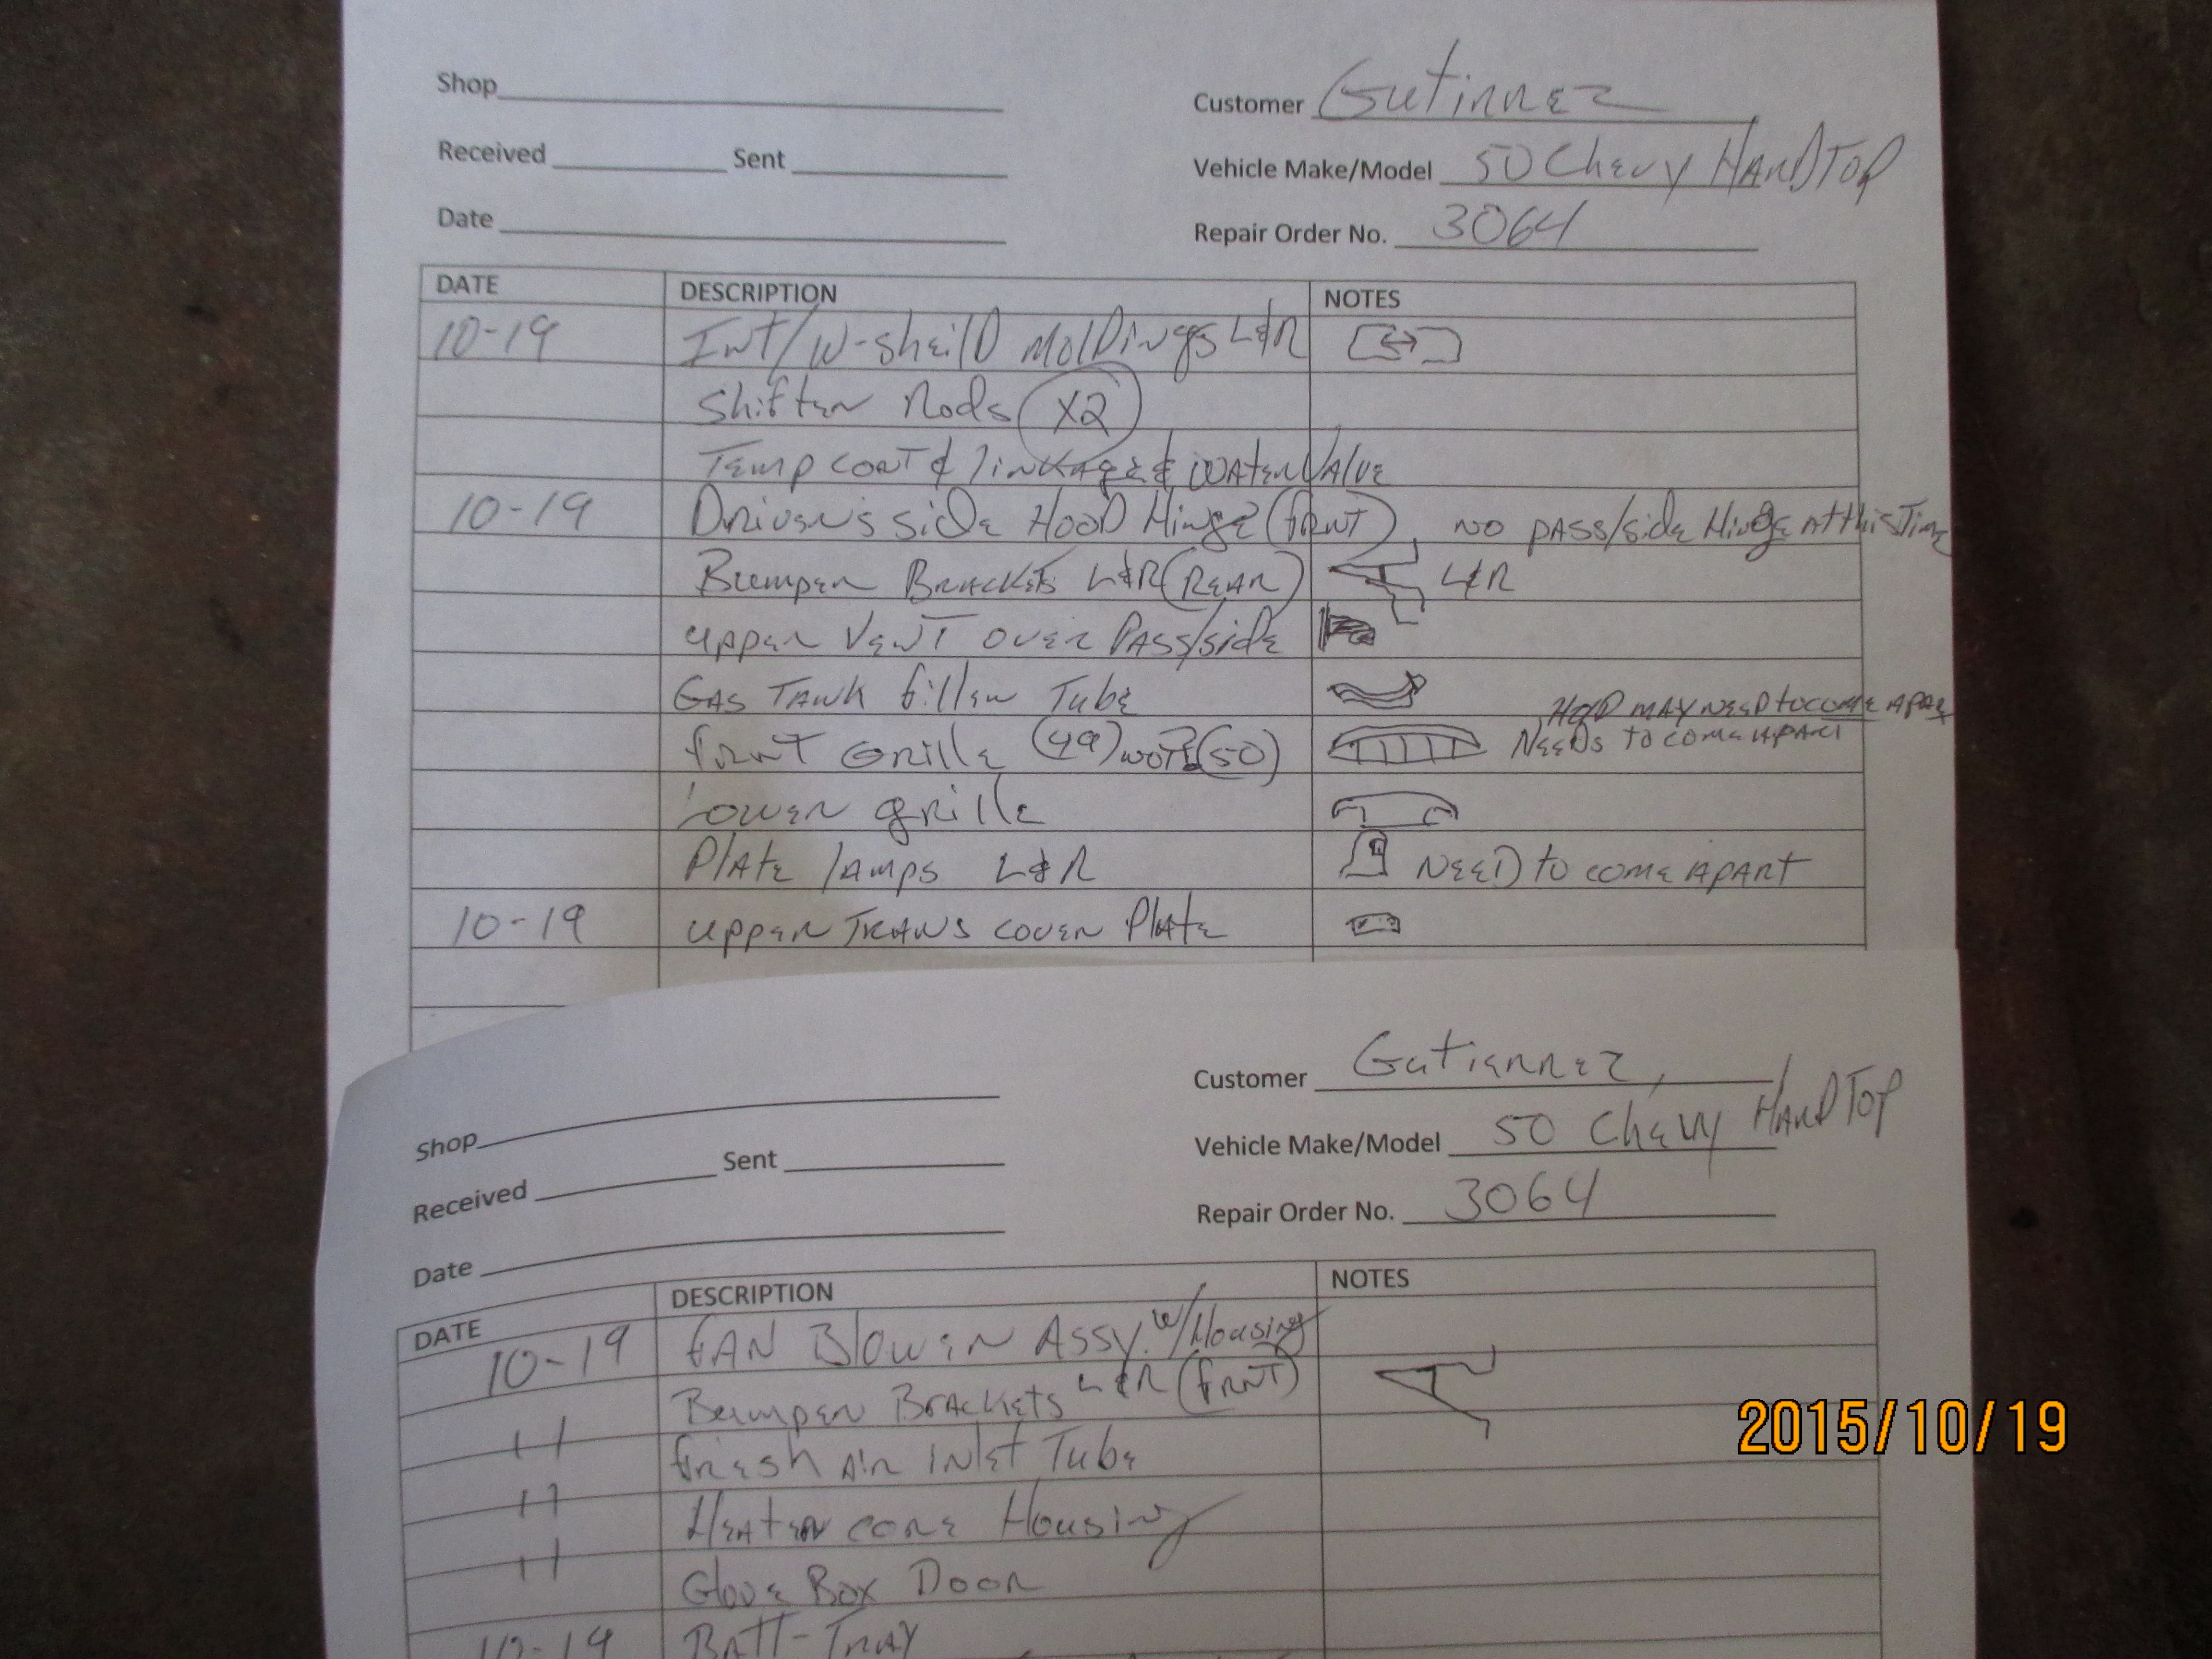 Shop
Customer Gutirrez
Received Sent
Vehicle Make/Model 50 Chevy HARDTOP
Date
Repair Order No. 3064
DATE DESCRIPTION NOTES
10-19 Int/W-sheilD MolDings L&R
Shifter Rods X2
Temp CONT & linkage & WATER VAlve
10-19 Driver's side HOOD Hinge (frNT) NO PASS/side Hinge At this Time
Bumper BRACKETs L&R (REAR) L&R
upper VeNT over PASS/side
GAS TANK filler Tube
HooD MAY NEED to come APAR
frNT Grille (49) NOT (50) NeeDs to come APART
lower grille
PlAte lAmps L&R NEED to come APART
10-19 upper TRANS cover PlAte
Customer Gutierrez,
Shop
Vehicle Make/Model 50 Chevy HARDTOP
Received Sent
Repair Order No. 3064
Date
DATE DESCRIPTION NOTES
10-19 fAN Blower Assy. w/Housing
11 Bumper BrACKets L&R (frNT)
11 fresh Air INlet Tube
11 HeAter core Housing
Glove Box Door
10-19 BATT-TrAY
2015/10/19